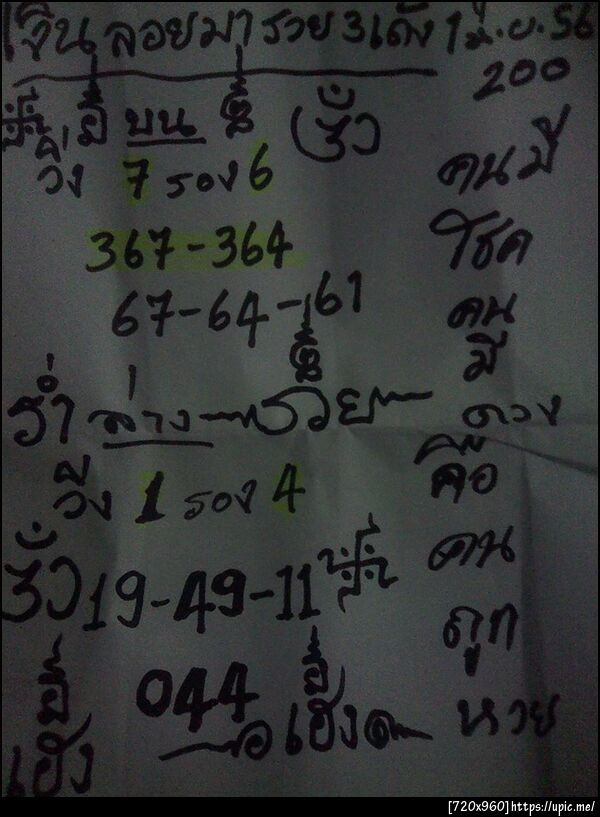 เงินลอยมา รวย 3 เด้ง 1 มิ.ย. 56
200
บน
วิ่ง 7 รอง 6
367-364
67-64-61
ร่ำ ล่าง รวย
วิ่ง 1 รอง 4
19-49-11
044
เฮง
เฮง
คนมี
โชค
คน
มี
ดวง
คือ
คน
ถูก
หวย
[720x960]https://upic.me/